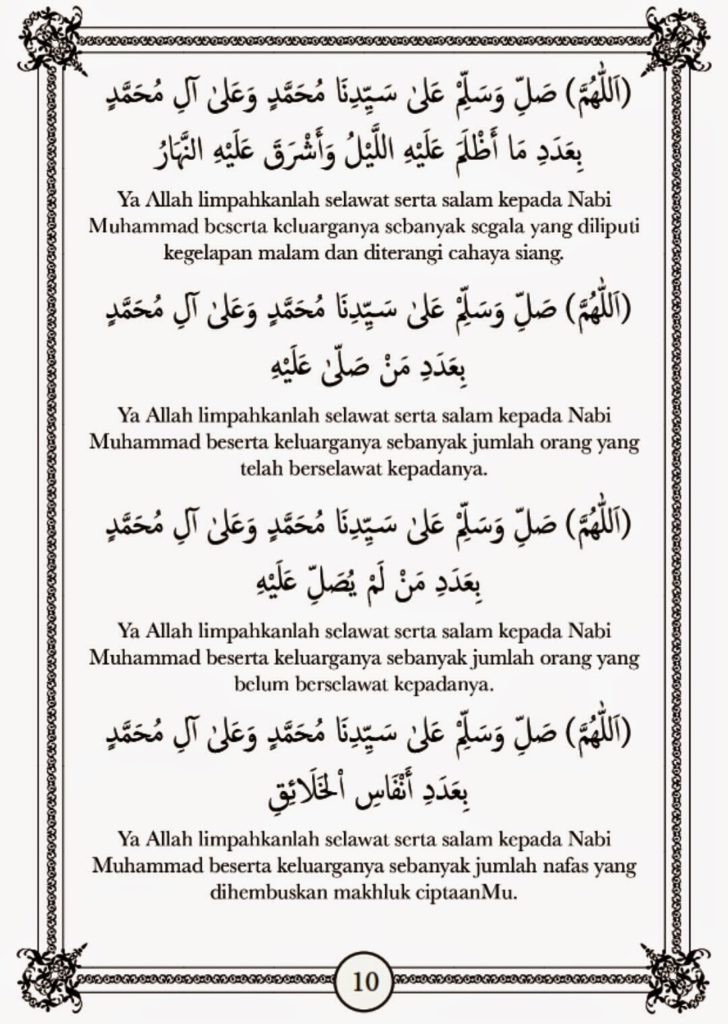 (اَللّٰهُمَّ) صَلِّ وَسَلِّمْ عَلىٰ سَيِّدِنَا مُحَمَّدٍ وَعَلىٰ آلِ مُحَمَّدٍ
بِعَدَدِ مَا أَظْلَمَ عَلَيْهِ اللَّيْلُ وَأَشْرَقَ عَلَيْهِ النَّهَارُ
Ya Allah limpahkanlah selawat serta salam kepada Nabi
Muhammad beserta keluarganya sebanyak segala yang diliputi
kegelapan malam dan diterangi cahaya siang.
(اَللّٰهُمَّ) صَلِّ وَسَلِّمْ عَلىٰ سَيِّدِنَا مُحَمَّدٍ وَعَلىٰ آلِ مُحَمَّدٍ
بِعَدَدِ مَنْ صَلّىٰ عَلَيْهِ
Ya Allah limpahkanlah selawat serta salam kepada Nabi
Muhammad beserta keluarganya sebanyak jumlah orang yang
telah berselawat kepadanya.
(اَللّٰهُمَّ) صَلِّ وَسَلِّمْ عَلىٰ سَيِّدِنَا مُحَمَّدٍ وَعَلىٰ آلِ مُحَمَّدٍ
بِعَدَدِ مَنْ لَمْ يُصَلِّ عَلَيْهِ
Ya Allah limpahkanlah selawat serta salam kepada Nabi
Muhammad beserta keluarganya sebanyak jumlah orang yang
belum berselawat kepadanya.
(اَللّٰهُمَّ) صَلِّ وَسَلِّمْ عَلىٰ سَيِّدِنَا مُحَمَّدٍ وَعَلىٰ آلِ مُحَمَّدٍ
بِعَدَدِ أَنْفَاسِ الْخَلَائِقِ
Ya Allah limpahkanlah selawat serta salam kepada Nabi
Muhammad beserta keluarganya sebanyak jumlah nafas yang
dihembuskan makhluk ciptaanMu.
10